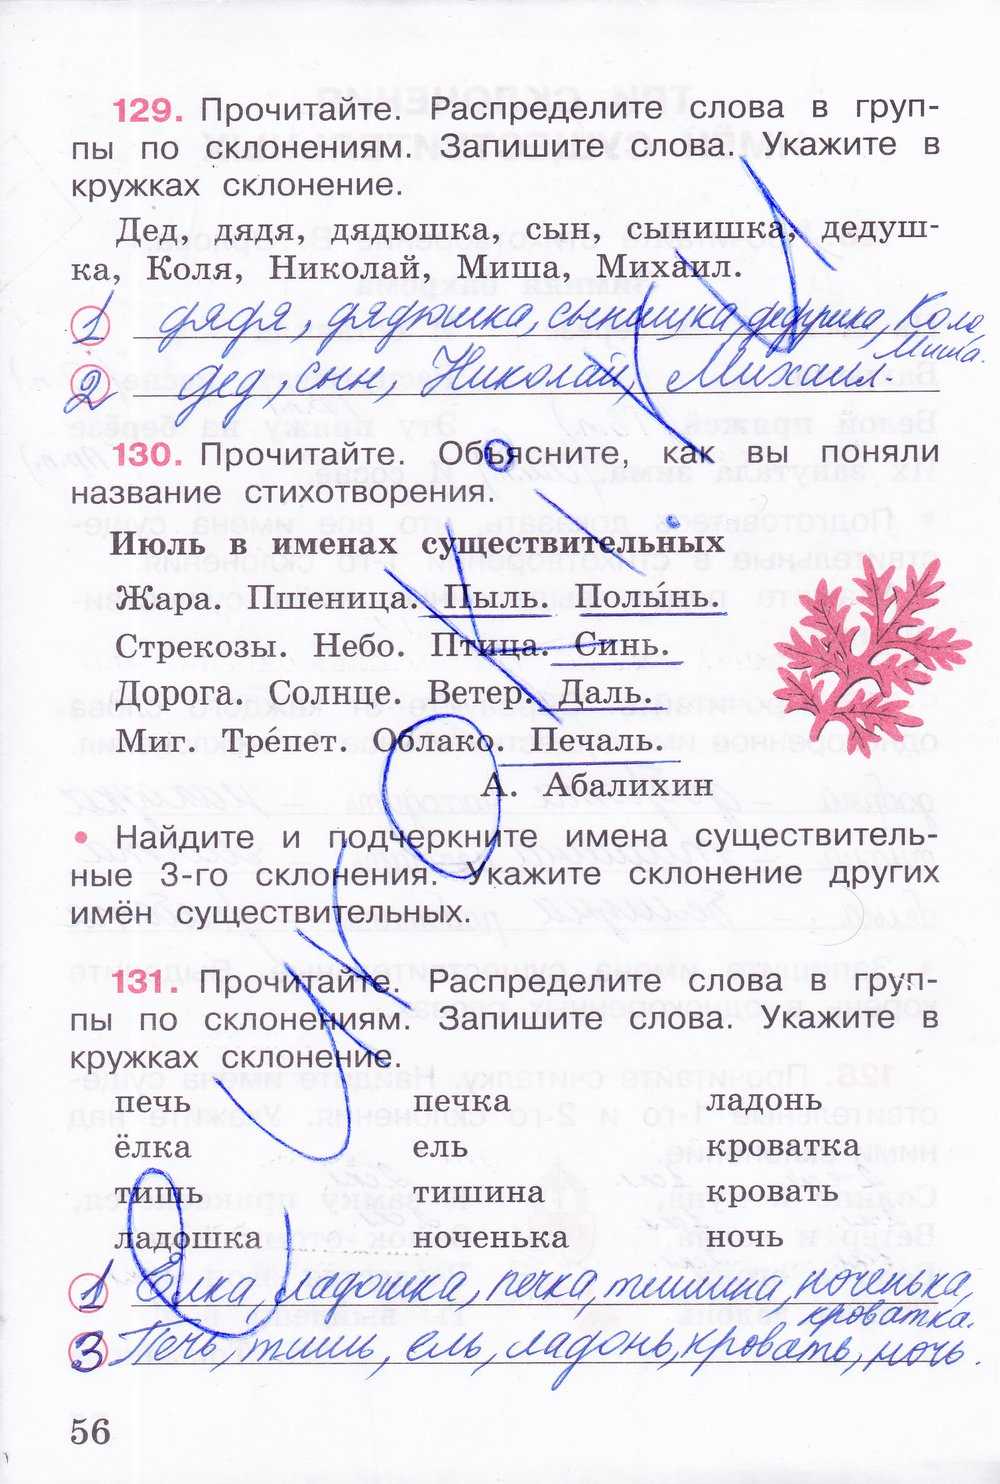 129. Прочитайте. Распределите слова в груп-
пы по склонениям. Запишите слова. Укажите в
кружках склонение.
Дед, дядя, дядюшка, сын, сынишка, дедуш-
ка, Коля, Николай, Миша, Михаил.
1 дядя, дядюшка, сынишка, дедушка, Коля
Миша.
2 дед, сын, Николай, Михаил.
130. Прочитайте. Объясните, как вы поняли
название стихотворения.
Июль в именах существительных
Жара. Пшеница. Пыль. Полы́нь.
Стрекозы. Небо. Птица. Синь.
Дорога. Солнце. Ветер. Даль.
Миг. Тре́пет. Облако. Печаль.
А. Абалихин
• Найдите и подчеркните имена существитель-
ные 3-го склонения. Укажите склонение других
имён существительных.
131. Прочитайте. Распределите слова в груп-
пы по склонениям. Запишите слова. Укажите в
кружках склонение.
печь печка ладонь
ёлка ель кроватка
тишь тишина кровать
ладошка ноченька ночь
1 Ёлка, ладошка, печка, тишина, ноченька,
кроватка.
3 Печь, тишь, ель, ладонь, кровать, ночь.
56